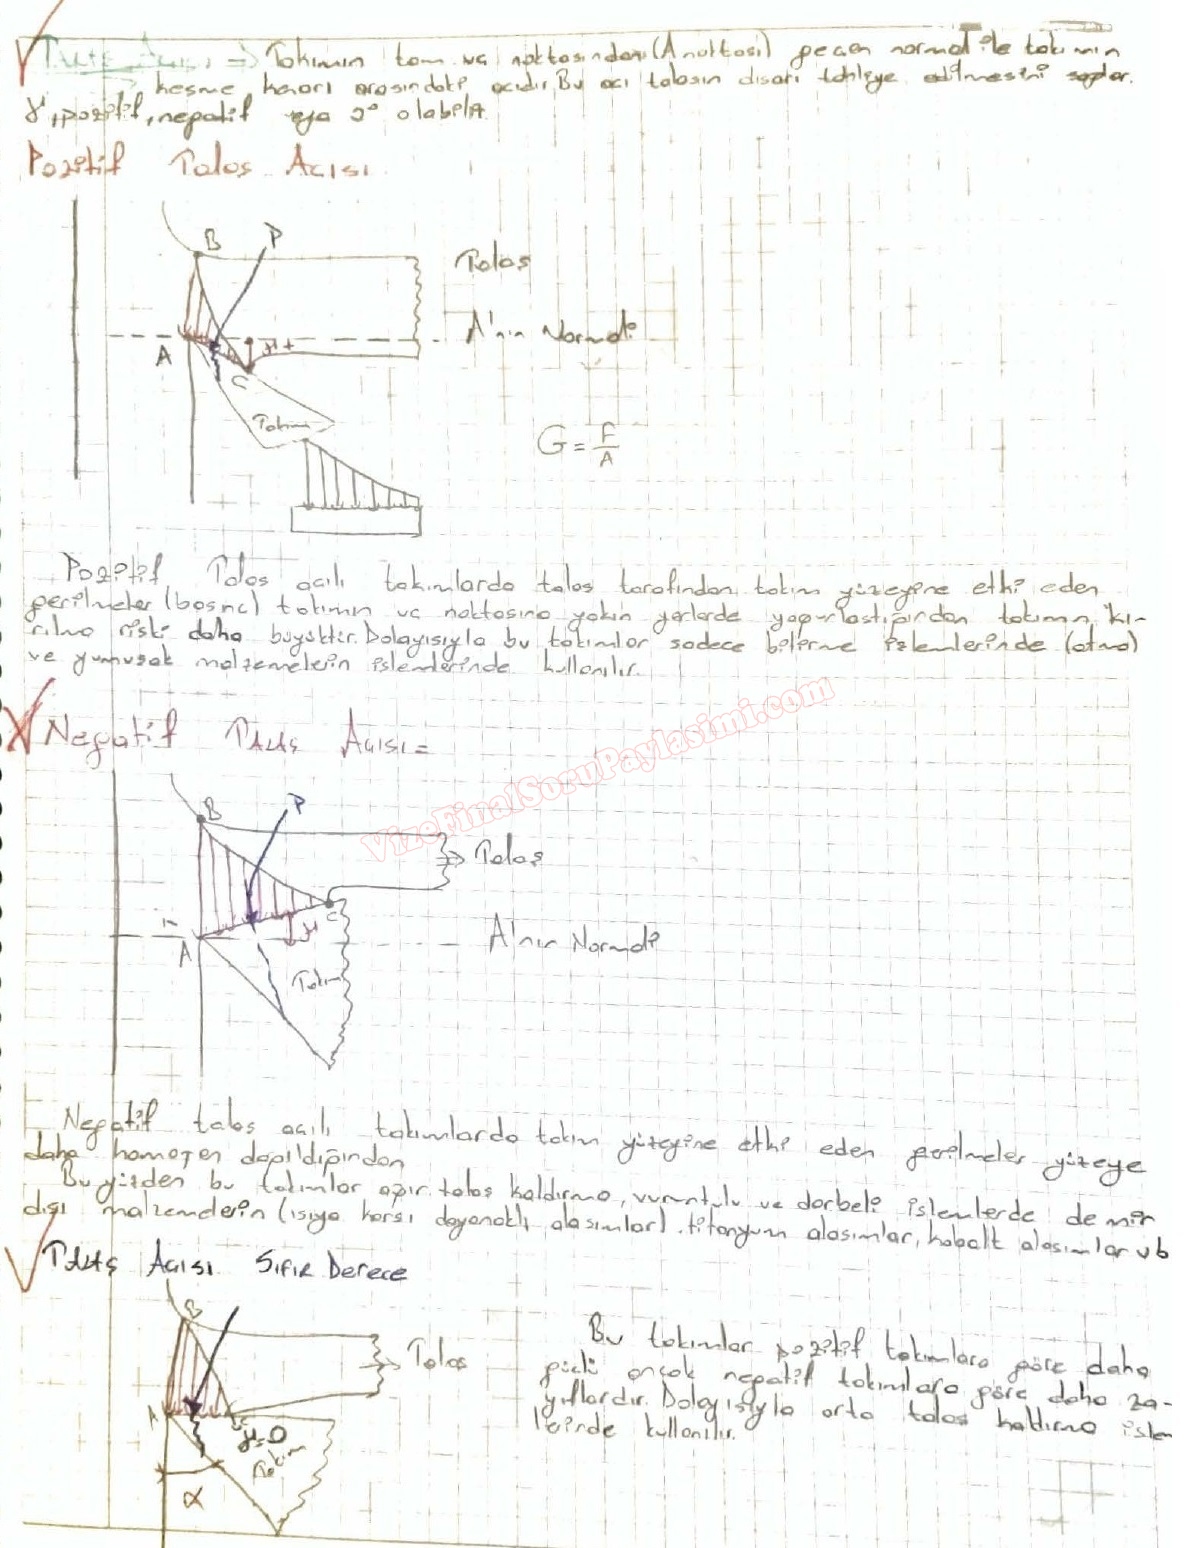 Talaş Açısı => Takımın tam uç noktasından (A noktası) geçen normal ile takımın
kesme kenarı arasındaki açıdır. Bu açı talaşın dışarı tahliye edilmesini sağlar.
γ, pozitif, negatif veya 0° olabilir.
Pozitif Talaş Açısı
B P
Talaş
A'nın Normali
A
γ +
C
Takım
G = F/A
Pozitif Talaş açılı takımlarda talaş tarafından takım yüzeyine etki eden
gerilmeler (basınç) takımın uç noktasına yakın yerlerde yoğunlaştığından takımın kı-
rılma riski daha büyüktür. Dolayısıyla bu takımlar sadece bitirme işlemlerinde
ve yumuşak malzemelerin işlemlerinde kullanılır.
VizeFinalSoruPaylasimi.com
Negatif Talaş Açısı =
B P
=> Talaş
C
γ
A
A'nın Normali
Takım
Negatif talaş açılı takımlarda takım yüzeyine etki eden gerilmeler yüzeye
daha homojen dağıldığından
Bu yüzden bu takımlar ağır talaş kaldırma, vuruntulu ve darbeli işlemlerde demir
dışı malzemelerin (ısıya karşı dayanaklı alaşımlar). titanyum alaşımlar, kobalt alaşımlar vb
Talaş Açısı Sıfır Derece
B
=> Talaş
A
γ=0
Takım
α
Bu takımlar pozitif takımlara göre daha
güçlü ancak negatif takımlara göre daha za-
yıflardır. Dolayısıyla orta talaş kaldırma işlem
lerinde kullanılır.